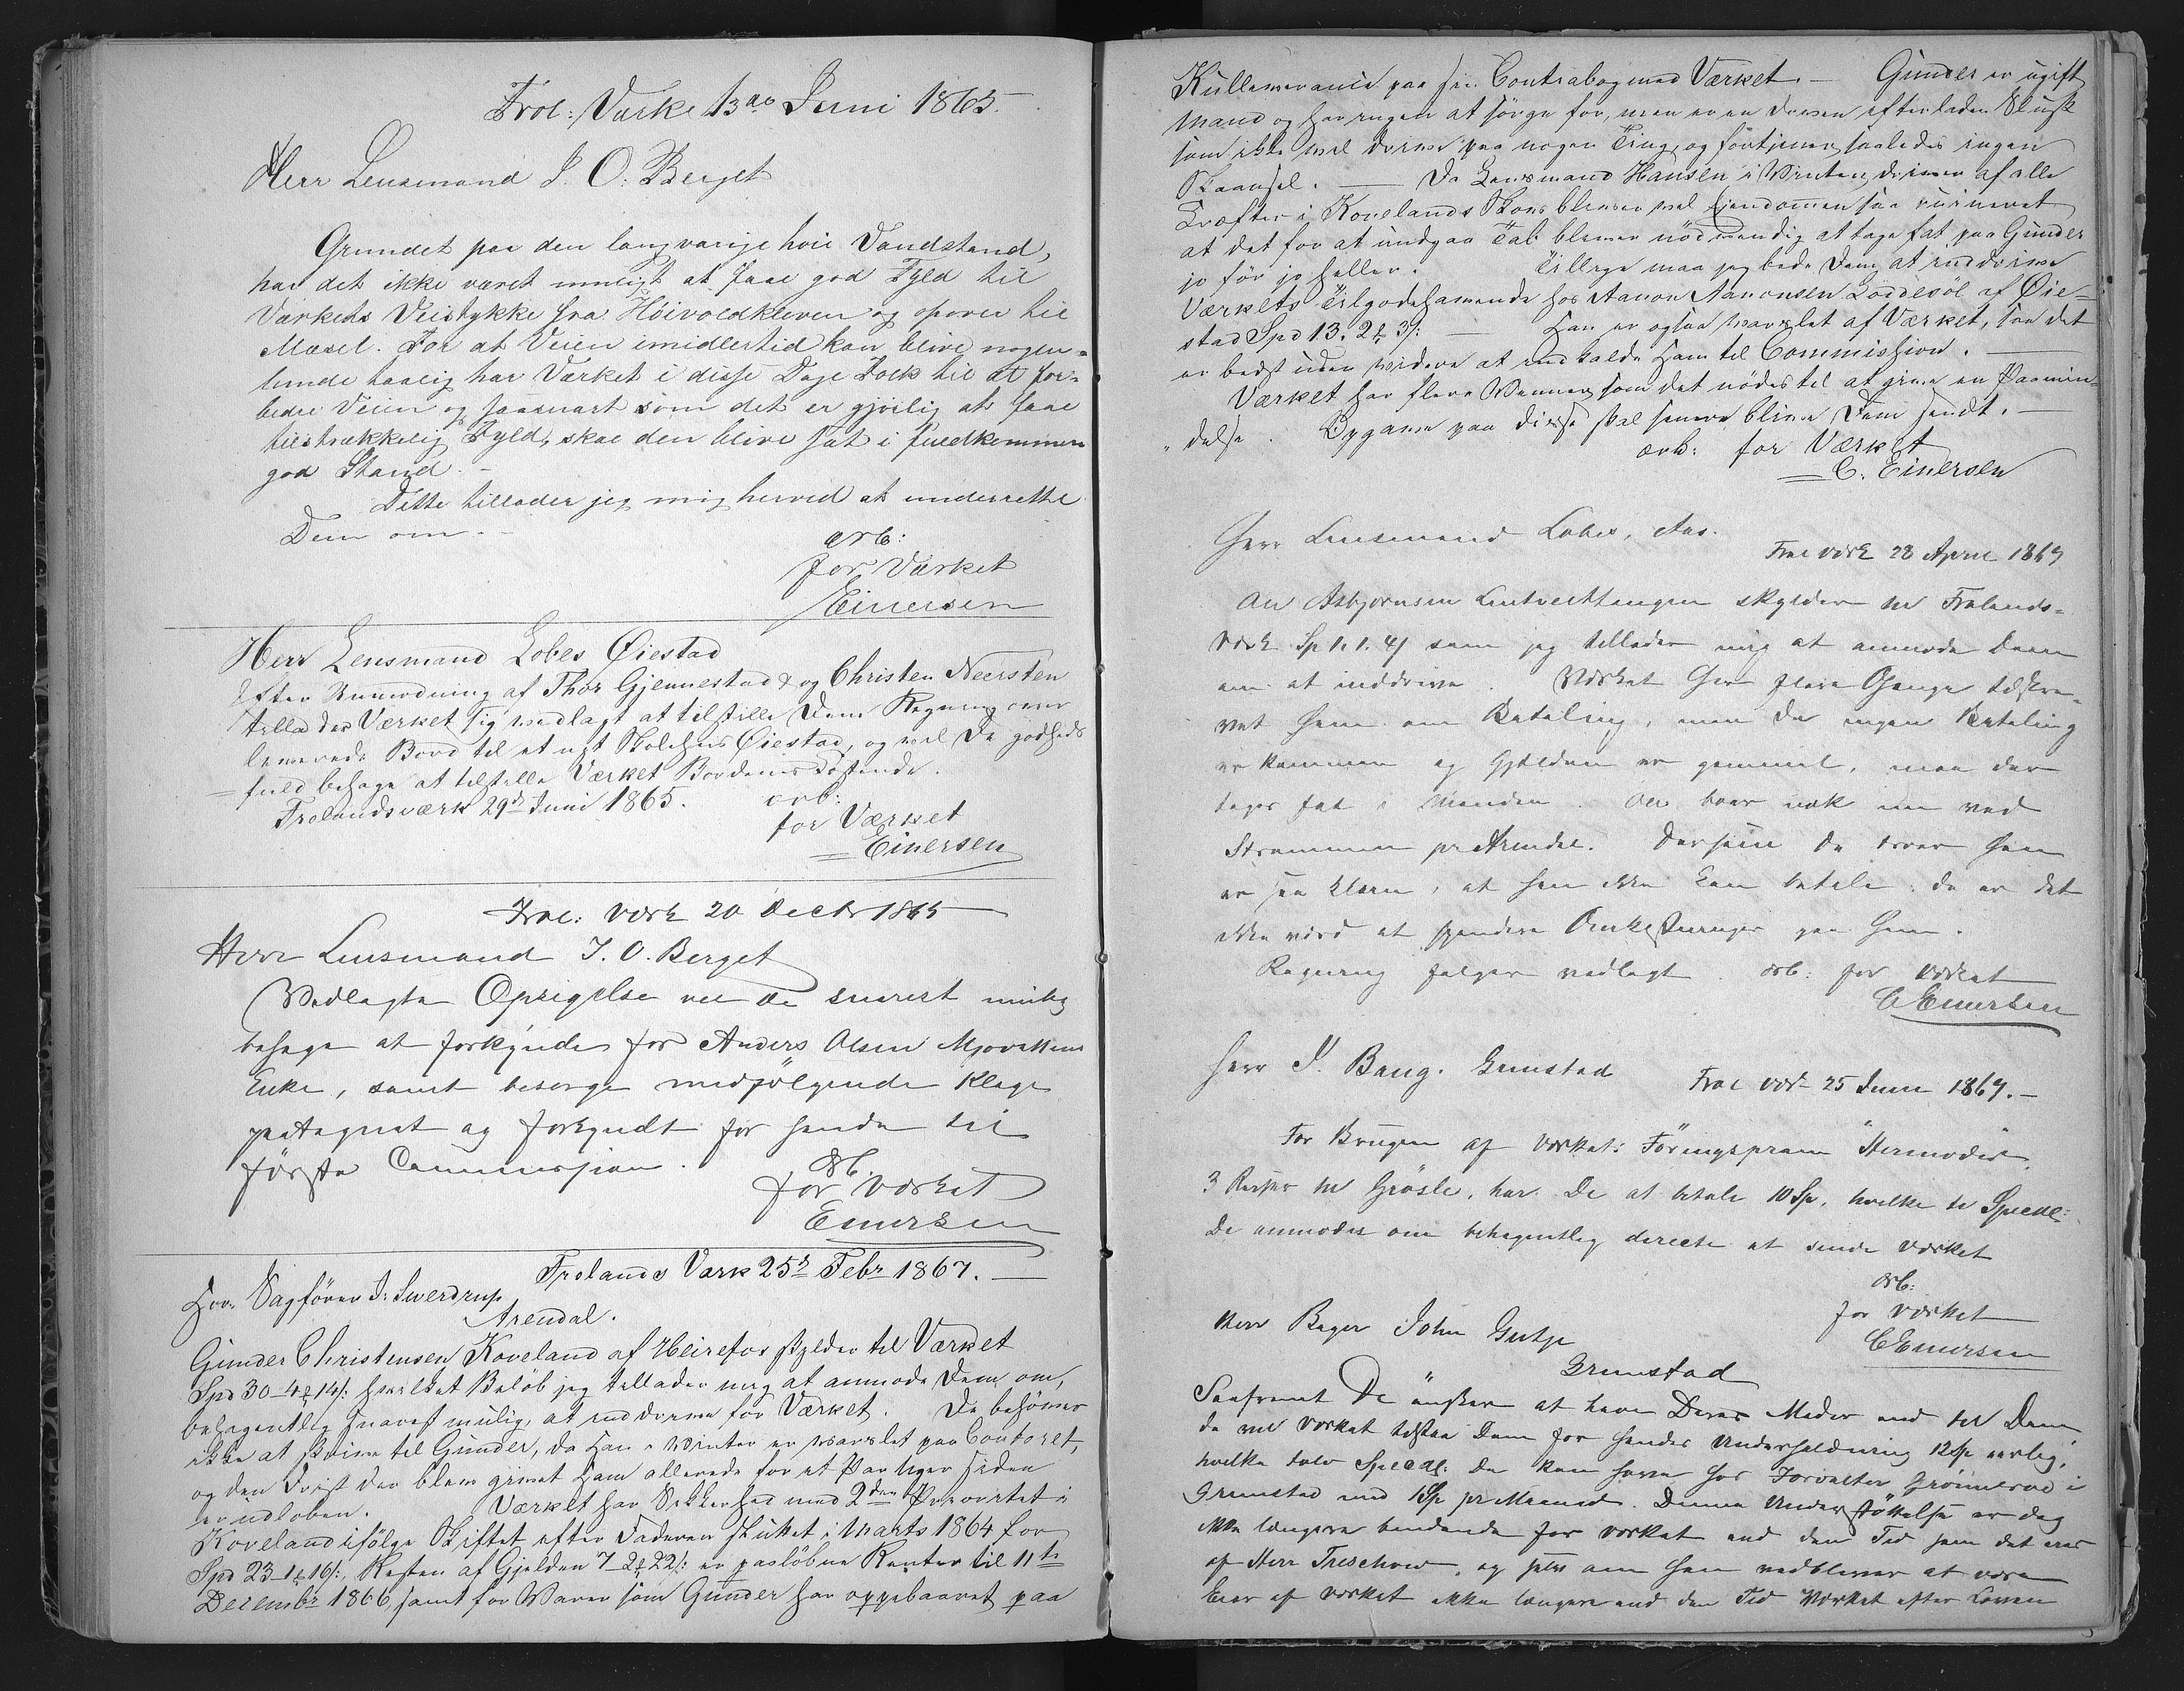 Frol: Værk 13de Juni 1865.
Herr Lensmand J. O. Berget
Grundet paa den langvarige høie Vandstand,
har det ikke været muligt at faae god Fyld til
Værkets Veistykke fra Høivoldkleven og opover til
Mæsel. For at Veien imidlertid kan blive nogen-
lunde taalig har Værket i disse Dage Folk til at for-
bedre Veien og saasnart som det er gjørlig at faae
tilstrækkelig Fyld, skal den blive sat i fuldkommen
god Stand. -
Dette tillader jeg mig herved at underrette
Dem om. -
ærb:
for Værket
Einersen
Herr Lensmand Lobes Øiestad
Efter Anmodning af Thor Gjennestad og Christen Neersten
tillader Værket sig vedlagt at tilstille Dem Regning over
leverede Bord til et nyt Skolehus Øiestad, og vil De godheds
= fuld behage at tilstille Værket Bordenes Kostende.
Frolandsværk 29de Juni 1865.
ærb:
for Værket
Einersen
Frol: Værk 20 Decbr 1865
Herr Lensmand J. O. Berget
Vedlagte Opsigelse vil De snarest mulig
behage at forkynde for Anders Olsen Mjovattens
Enke, samt besørge medfølgende Klage
paategnet og forkyndt for hende til
første Commission.
ærb.
for Værket
Einersen
Frolands Værk 25de Febr 1867. —
Hrr. Sagfører J. Swerdrup
Arendal.
Gunder Christensen Koveland af Heirefos skylder til Værket
Spd 30-4-14 s: hvilket Beløb jeg tillader mig at anmode Dem om,
behagentlig snarest mulig, at inddrive for Værket. De behøver
ikke at skrive til Gunder, da han i Vinter er varslet paa Contoret,
og den Frist der blev givet ham allerede for et Par Uger siden
er udløben. Værket har Sikkerhed med 2den Prioritet i
Koveland ifølge Skiftet efter Faderen sluttet i Marts 1864 for
Spd 23-1-16 s:, Resten af Gjelden 7-2-22 s: er paaløbne Renter til 11te
Decembr 1866, samt for Varer som Gunder har oppebaaret paa
Kulleverance paa sin Contrabog med Værket. — Gunder er ugift
Mand og har ingen at sørge for, men er en doven efterladen Slusk
som ikke vil drive paa nogen Ting, og fortjener saaledes ingen
Skaansel. — Da Lensmand Hansen i Vinter driver af alle
Kræfter i Kovelands Skov bliver vel Eiendommen saa ruineret
at det for at undgaa Tab bliver nødvendig at tage fat paa Gunder
jo før jo heller. Tillige maa jeg bede Dem at inddrive
Værkets Tilgodehavende hos Aanon Aanonsen Loddesøl af Øie-
stad Spd 13. 2. 3 s: — Han er ogsaa varslet af Værket, saa det
er bedst uden videre at indkalde ham til Commission. —
Værket har flere Venner som det nødes til at give en Paamin-
delse. Opgave paa disse skal senere blive Dem sendt. —
ærb: for Værket
C. Einersen
Herr Lensmand Lobes, Aas.
Frol værk 28 April 1869
Ole Asbjørnsen skylder til Frolands-
værk Sp 1. 1. 4 s som jeg tillader mig at anmode Dem
om at inddrive. Værket har flere Gange tilskre-
vet ham om Betaling, men da ingen Betaling
er kommen og Gjelden er gammel, maa der
tages fat i Manden. Ole boer nok nu ved
Strømmen pr Arendal. Dersom De troer han
er saa klein, at han ikke kan betale, da er det
ikke værd at spendere Omkostninger paa ham.
Regning følger vedlagt. ærb: for Værket
C Einersen
Herr J. Bang. Grimstad
Frol værk 25 Juni 1869. —
For Brugen af Værkets Føringspram "Hermoder"
3 Reiser til Grøsle, har De at betale 10 Sp, hvilke ti Specdl:
De anmodes om behagentlig directe at sende Værket
ærb:
for Værket
C Einersen
Herr Bager John Gutje
Grimstad
Saafremt De ønsker at have Deres Moder ned til Dem
da vil Værket tilstaa Dem for hendes Underholdning 12 Sp aarlig,
hvilke tolv Specdl: De kan hæve hos Forvalter Grønnerød i
Grimstad med 1 Sp pr Maaned. Denne Understøttelse er dog
ikke længere bindende for Værket end den Tid som det eies
af Herr Treschow, og selv om han vedbliver at være
Eier af Værket ikke længere end den Tid Værket efter Loven